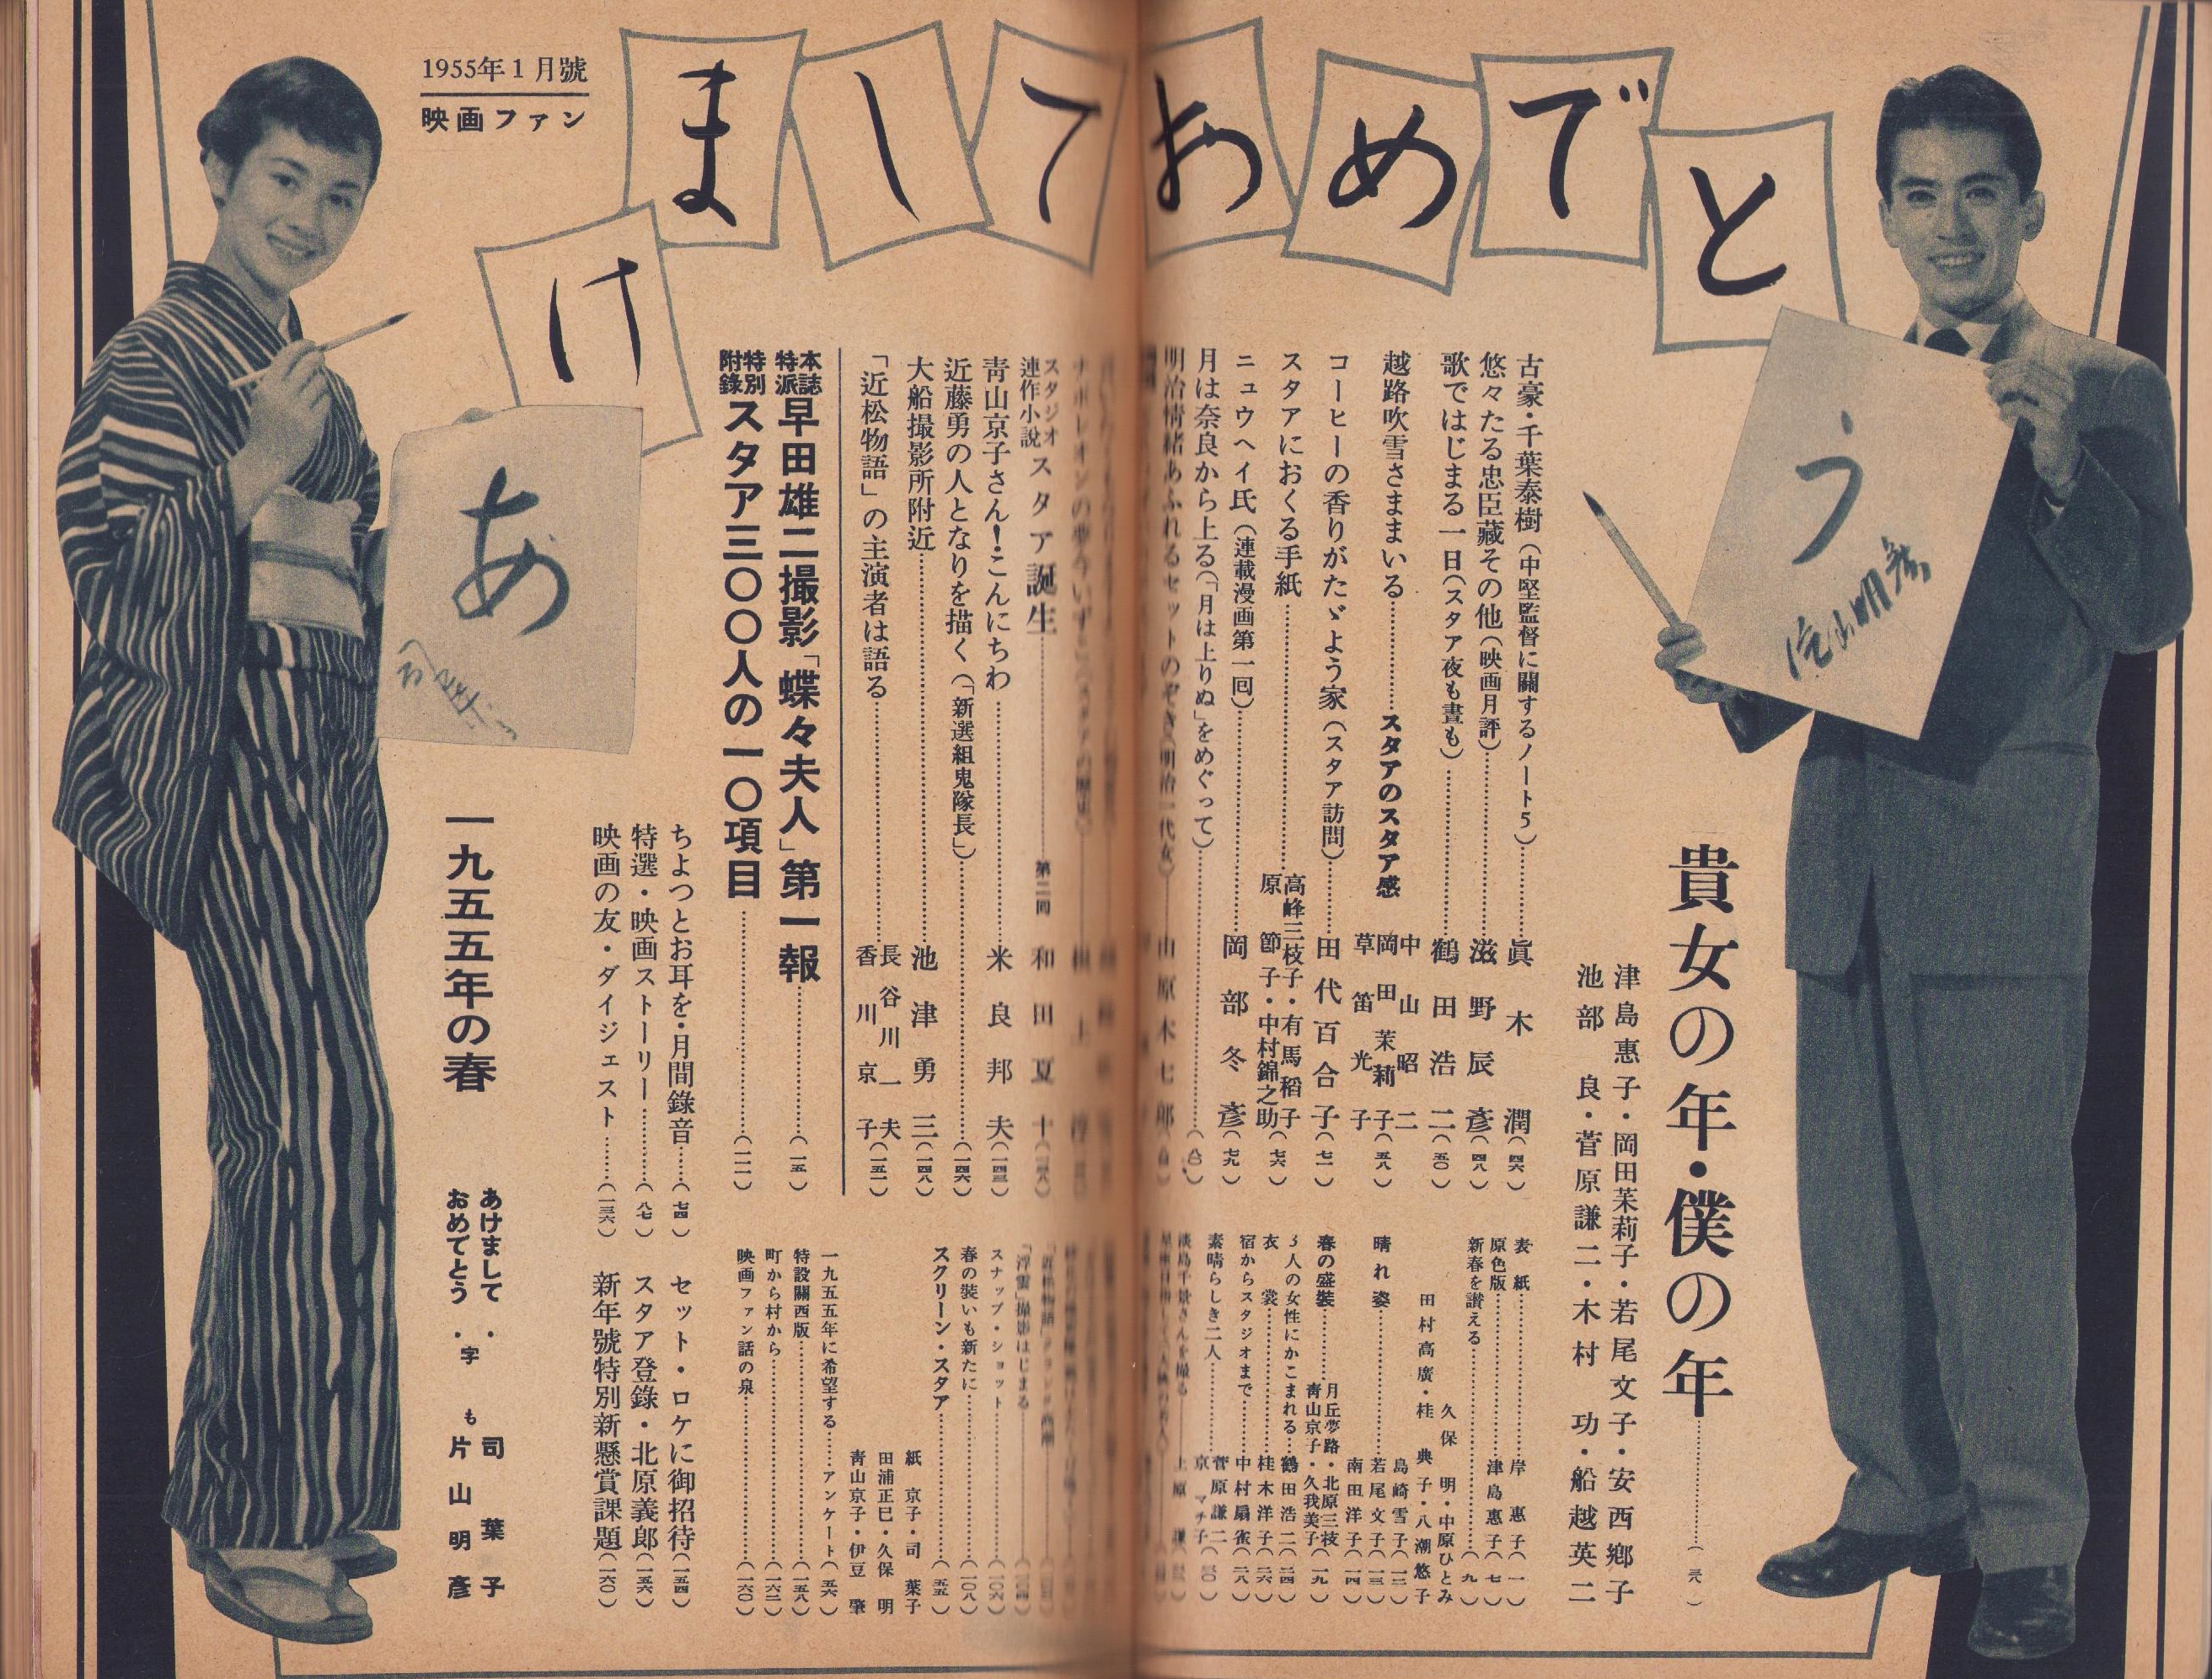 1955年1月號
映画ファン
あ
け
ま
し
て
お
め
で
と
う
貴女の年・僕の年
津島惠子・岡田茉莉子・若尾文子・安西郷子
池部良・菅原謙二・木村功・船越英二
古豪・千葉泰樹(中堅監督に關するノート5)……眞木潤
悠々たる忠臣藏その他(映画月評)……滋野辰彥
歌ではじまる一日(スタア夜も晝も)……鶴田浩二(五〇)
越路吹雪さままいる……スタアのスタア感
中山昭二
岡田茉莉子
草笛光子
コーヒーの香りがたゞよう家(スタア訪問)……田代百合子
スタアにおくる手紙……
高峰三枝子・有馬稻子
原節子・中村錦之助
ニュウヘイ氏(連載漫画第一囘)……岡部冬彥
月は奈良から上る(「月は上りぬ」をめぐって)
明治情緒あふれるセットのぞき(明治一代女)……山原木七郎
スタジオ
連作小說
スタア誕生……第二回 和田夏十
靑山京子さん!こんにちわ……米良邦夫
近藤勇の人となりを描く(「新選組鬼隊長」)
大船撮影所附近……池津勇三
「近松物語」の主演者は語る
長谷川一夫
香川京子
本誌特派
早田雄二撮影「蝶々夫人」第一報
特別附錄
スタア三〇〇人の一〇項目
ちよつとお耳を・月間錄音……(七四)
特選・映画ストーリー……(八七)
映画の友・ダイジェスト……(一三六)
セット・ロケに御招待(一五四)
スタア登錄・北原義郎(一五六)
新年號特別新懸賞課題(一六〇)
表紙……岸惠子(一)
原色版……津島惠子(七)
新春を讃える……(九)
久保明・中原ひとみ
田村高廣・桂典子・八潮悠子
晴れ姿……
島崎雪子(一二)
若尾文子(一三)
南田洋子(一四)
春の盛裝……
月丘夢路・北原三枝
靑山京子・久我美子(一九)
3人の女性にかこまれる…鶴田浩二(二四)
衣裳……桂木洋子(二六)
宿からスタジオまで……中村扇雀(二八)
素晴らしき二人……
菅原謙二
京マチ子
淡島千景さんを撮る……上原謙
「浮雲」撮影はじまる
スナップ・ショット……(一〇六)
春の裝いも新たに……(一〇八)
スクリーン・スタア……(五五)
紙京子・司葉子
田浦正巳・久保明
靑山京子・伊豆肇
一九五五年に希望する……アンケート(五六)
特設關西版……(一五八)
町から村から……(一六二)
映画ファン話の泉……(一六〇)
一九五五年の春
あけまして・司葉子
おめでとう・字も片山明彥